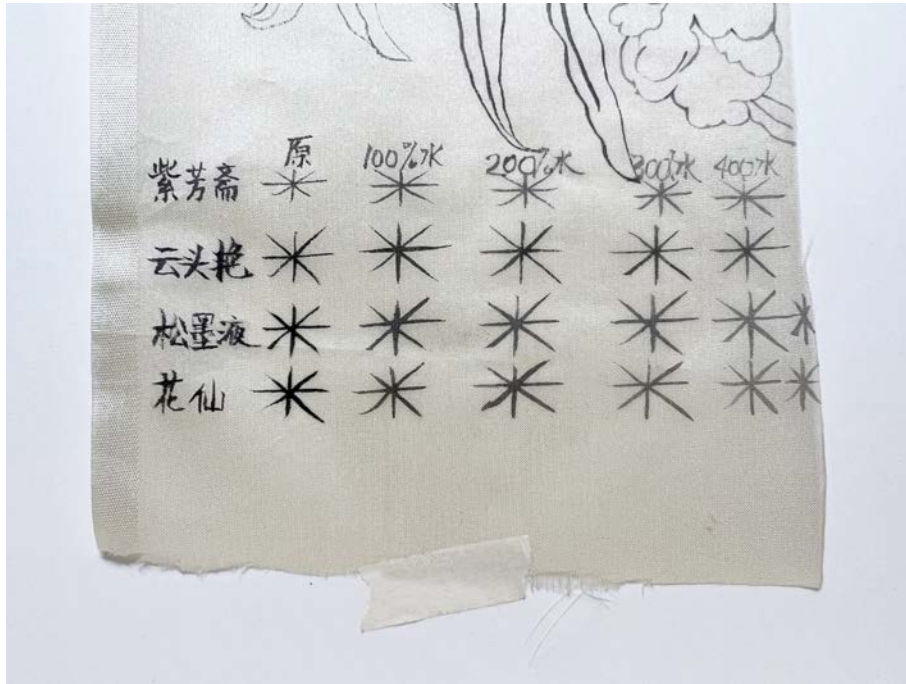 原 100%水 200%水 300水 400水
紫芳斋
云头艳
松墨液
花仙